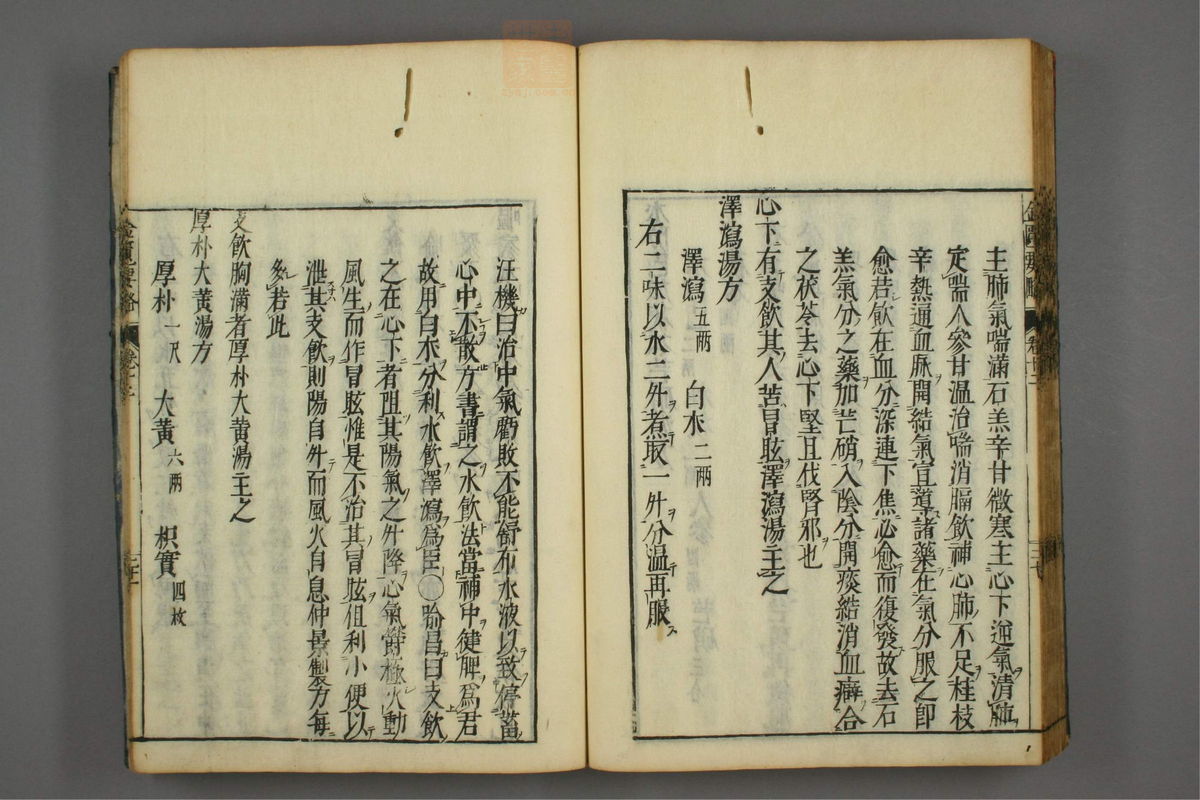 主肺氣喘滿石羔辛甘微寒主心下逆氣清肺
定喘人參甘温治喘消膈飲補心肺不足桂枝
辛熱通血脉開結氣宜導諸藥在氣分服之即
愈若飲在血分深連下焦必愈而復發故去石
羔氣分之藥加芒硝入陰分開痰結消血癖合
之茯苓去心下堅且伐腎邪也
心下有支飲其人苦冒眩澤瀉湯主之
澤瀉湯方
澤瀉五兩 白朮二兩
右二味以水二升煮取一升分温再服
汪機曰治中氣虧敗不能舒布水液以致停蓄
心中不散方書謂之水飲法當補中健脾為君
故用白朮分利水飲澤瀉為臣○喻昌曰支飲
之在心下者阻其陽氣之升降心氣鬱極火動
風生而作冒眩惟是不治其冒眩但利小便以
泄其支飲則陽自升而風火自息仲景製方每
多若此
支飲胸滿者厚朴大黃湯主之
厚朴大黃湯方
厚朴一尺 大黃六兩 枳實四枚